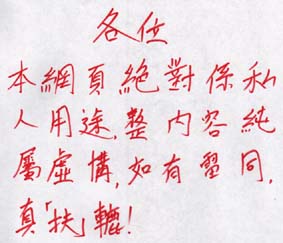 各位
本網頁絕對係私
人用途,整內容純
屬虛構,如有習同,
真「扶」轆!